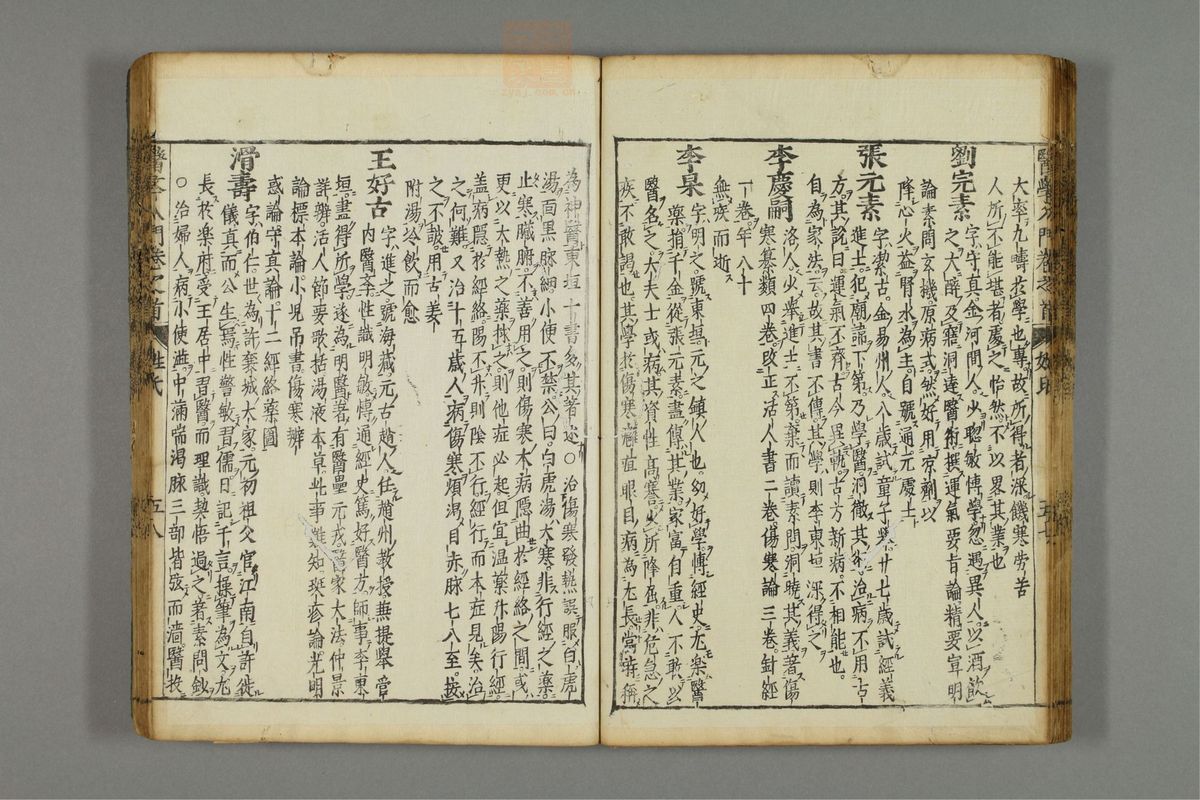 醫學入門卷之首 姓氏 五十七
大率九疇於學也專故所得者深饑寒勞苦
人所不能堪者處之怡然不以畧其業也
劉完素 字守真金河間人少聰敏博學忽遇異人以酒飲
之大醉及寤洞達醫術撰運氣要旨論精要宣明
論素問玄機原病式然好用凉劑以
降心火益腎水為主自號通元處士
張元素 字潔古金易州人八歲試童子舉廿七歲試經義
進士犯廟諱下第乃學醫洞徹其術治病不用古
方其說曰運氣不齊古今異軌古方新病不相能也
自為家法云故其書不傳其學則李東垣深得之
李慶嗣 洛人少舉進士不第棄而讀素問洞曉其義著傷
寒纂類四卷攷正活人書二卷傷寒論三卷針經
一卷年八十
無疾而逝
李杲 字明之號東垣元之鎮人也幼好學博經史尤樂醫
藥捐千金從張元素盡傳其業家富自重人不敢以
醫名之大夫士或病其資性高謇少所降屈非危急之
疾不敢謁也其學於傷寒癰疽眼目病為尤長當時稱
為神醫東垣十書多其著述○治傷寒發熱誤服白虎
湯面黑脉細小便不禁公曰白虎湯大寒非行經之藥
止寒臟腑不善用之則傷寒本病隱曲於經絡之間或
更以大熱之藥捄之則他症必起但宜溫藥升陽行經
盖病隱於經絡陽不升則陰不行經行而本症見矣治
之何難又治十五歲人病傷寒煩渴目赤脉七八至按
之不鼓用古姜
附湯冷飲而愈
王好古 字進之號海藏元古趙人任趙州教授兼提舉管
內醫學性識明敏博通經史篤好醫方師事李東
垣盡得所學遂為明醫著有醫壘元戎醫家大法仲景
詳辨活人節要歌括湯液本草此事難知班疹論光明
論標本論小兒吊書傷寒辨
惑論守真論十二經絡藥圖
滑壽 字伯仁世為許襄城大家元初祖父官江南自許徙
儀真而公生焉性警敏習儒日記千言操筆為文尤
長於樂府受王居中習醫而理識契悟過之著素問鈔
○治婦人病小便澁中滿喘渴脉三部皆弦而濇醫投
醫學入門卷之首 姓氏 五十八